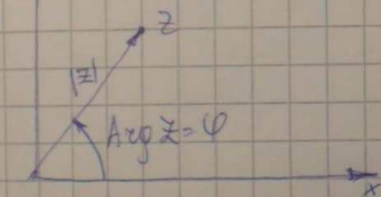 z
|z|
Arg z = φ
x